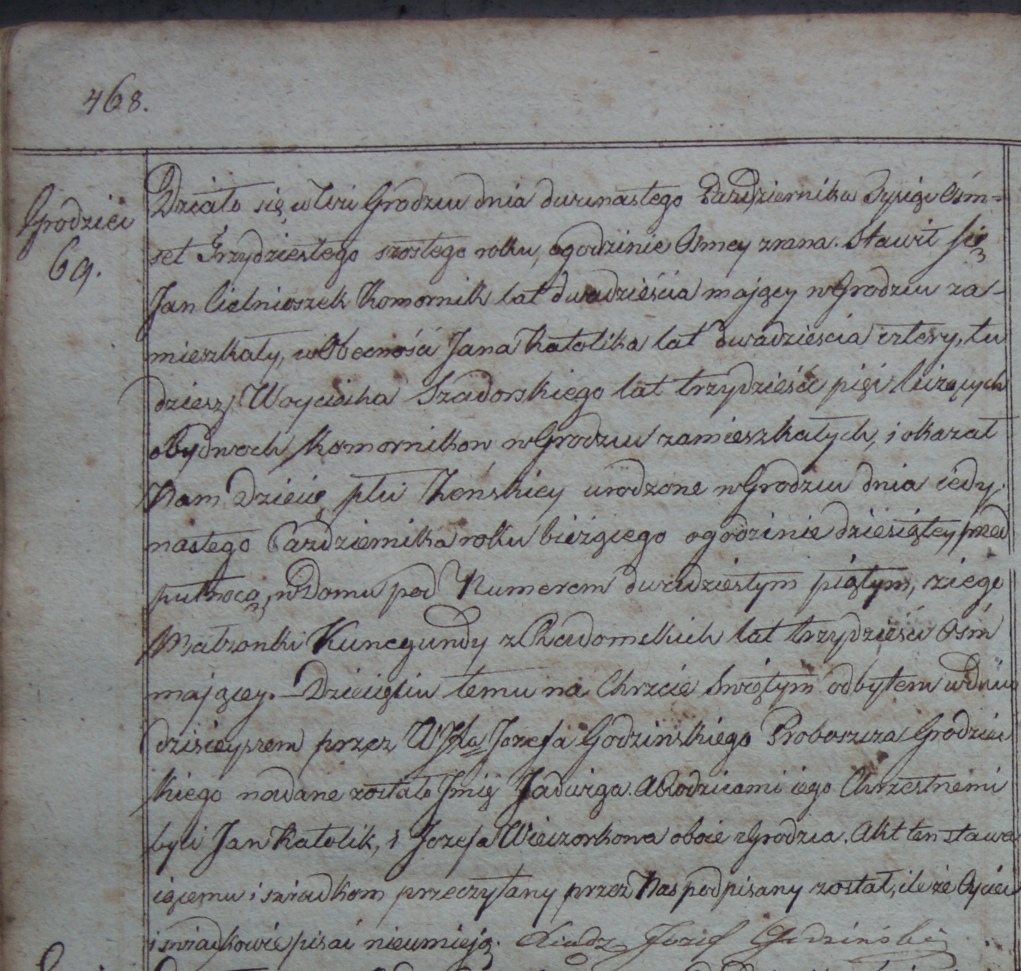 468.
Grodziec
69.
Działo się w Wsi Grodzcu dnia dwunastego Pazdziernika Tysiąc Ośm-
set Trzydziestego szostego roku, o godzinie Osmey zrana. Stawił się
Jan Cielnioszek Komornik lat dwadzieścia maiący w Grodzcu za-
mieszkały, w Obecności Jana Katolika lat dwadzieścia cztery, tu
dziesz Woyciecha Szadorskiego lat trzydzieści pięć liczących
obydwoch Komornikow w Grodzcu zamieszkałych, i okazał
Nam Dziecię płci Żeńskiey urodzone w Grodzcu dnia iedy-
nastego Pazdziernika roku bieżącego o godzinie dziesiątey przed
pułnocą, w Domu pod Numerem dwudziestym piątym, z iego
Małżonki Kunegundy z Radomskich lat trzydzieści Ośm
maiącey. Dziecięciu temu na Chrzcie Świętym odbytem w dniu
dzisieyszem przez WJXa Jozefa Godzińskiego Proboszcza Grodziec
kiego nadane zostało Jmię Jadwiga. A Rodzicami iego Chrzestnemi
byli Jan Katolik, i Jozefa Wieczorkowa oboie z Grodzca. Akt ten stawa
iącemu i swiadkom przeczytany, przez Nas podpisany został, ile że Oyciec
i swiadkowie pisać nieumieią. Xiądz Jozef Godziński